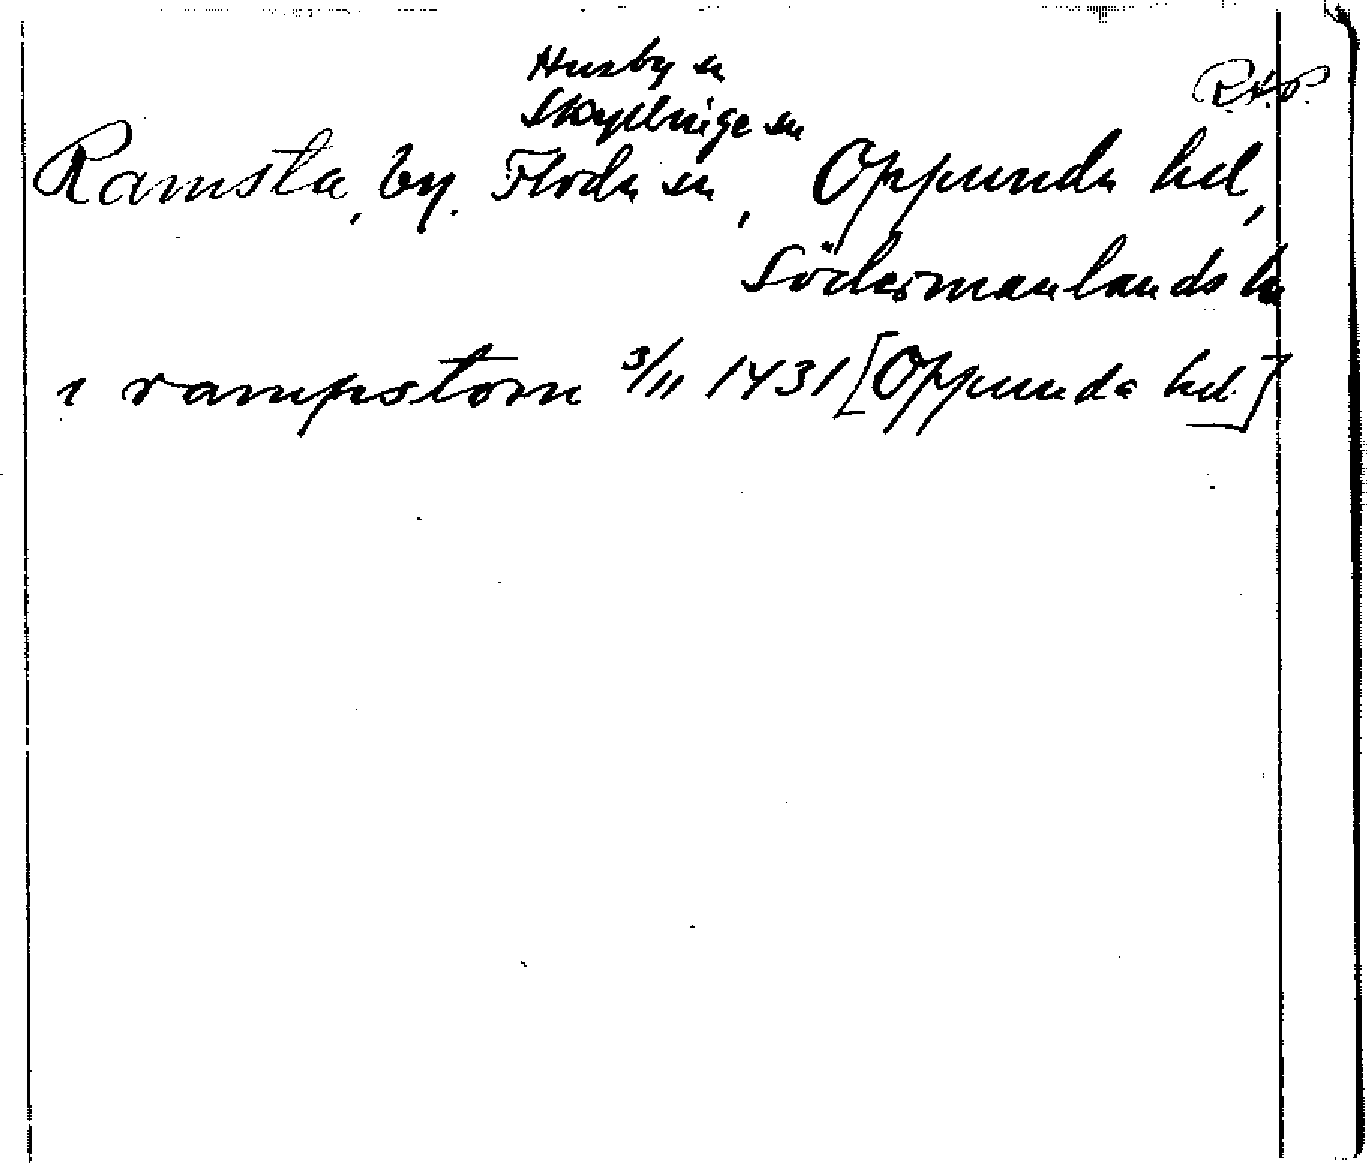 Husby sn
Skyllinge sn
R.A.P.
Ramsta, by. Floda sn, Oppunda hd,
Södermanlands ln
i rampstom 3/11 1431 [Oppunda hd.]